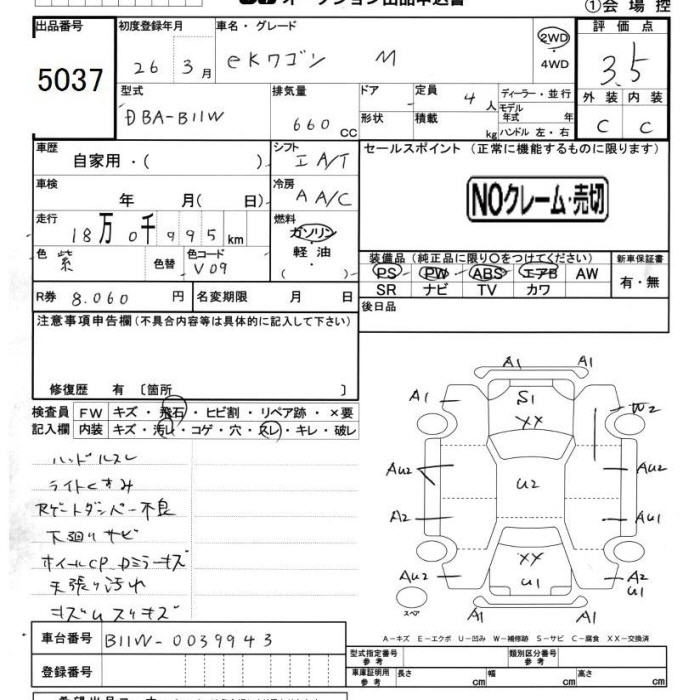 オークション出品申込書
①会場控
出品番号
5037
初度登録年月
26 3月
車名・グレード
eKワゴン M
2WD
4WD
評価点
3.5
型式
DBA-B11W
排気量
660 CC
ドア
形状
定員
4人
積載
kg
ディーラー・並行
モデル年式 年
ハンドル 左・右
外装 内装
C C
車歴
自家用・( )
シフト
I A/T
セールスポイント (正常に機能するものに限ります)
NOクレーム・売切
車検
年 月( 日)
冷房
A A/C
走行
18万0千995km
燃料
ガソリン
軽油
( )
色
紫
色替
色コード
V09
装備品 (純正品に限り○をつけてください)
PS PW ABS エアB AW
SR ナビ TV カワ
新車保証書
有・無
R券 8.060円
名変期限 月 日
後日品
注意事項申告欄 (不具合内容等は具体的に記入して下さい)
修復歴 有 〔箇所 〕
検査員記入欄
FW キズ・飛石・ヒビ割・リペア跡・×要
内装 キズ・汚レ・コゲ・穴・スレ・キレ・破レ
ハンドルスレ
ライトくすみ
Rゲートダンパー不良
下廻りサビ
ホイールCP Dミラーキズ
天張り汚れ
キズUスリキズ
A1 A1
A1 S1 W2
XX
AU2 U2 AU2
A2 AU1
AU2 XX A2
U1 U1
A1 A1
スペア
A-キズ E-エクボ U-凹み W-補修跡 S-サビ C-腐食 XX-交換済
車台番号 B11W-0039943
登録番号
型式指定番号 参考
類別区分番号 参考
車庫証明用 参考
長さ cm 幅 cm 高さ cm